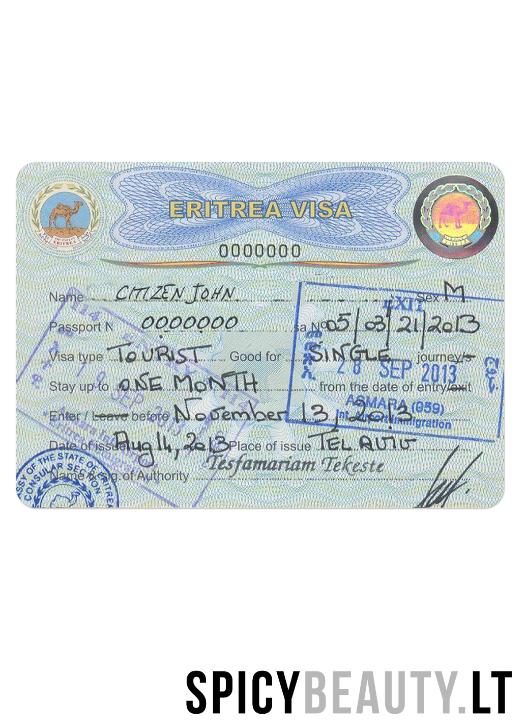 ERITREA VISA
0000000
Name CITIZEN JOHN Sex M
Passport N 0000000 sa N 005/03/21/2013
Visa type TOURIST Good for SINGLE journey/s
Stay up to ONE MONTH from the date of entry/exit
Enter / Leave before November 13, 2013
Date of issue Aug 14, 2013 Place of issue TEL AVIV
Name & sig. of Authority Tesfamariam Tekeste
EXIT
28 SEP 2013
ASMARA (059)
Immigration
SY OF THE STATE OF ERITREA
CONSULAR SECTION
SPICYBEAUTY.LT